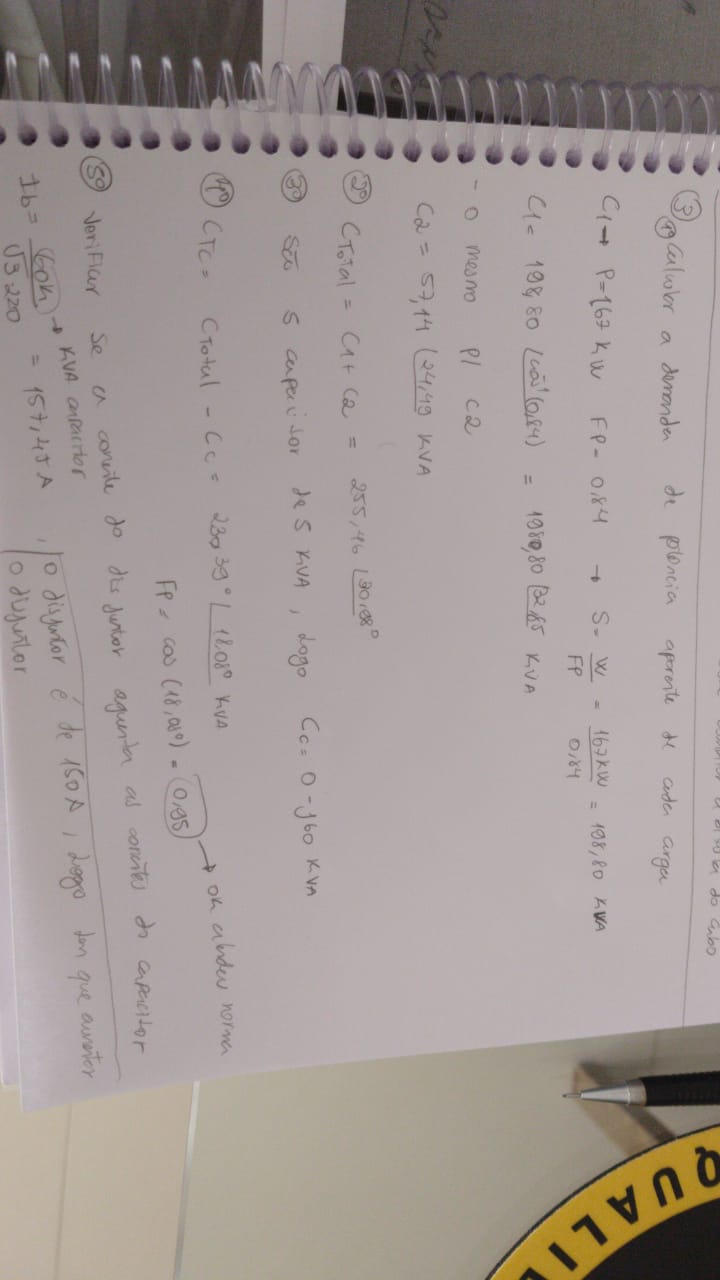 a bitola do cabo
③ 1º Calcular a demanda de potência aparente de cada carga
C1 → P=167 KW FP= 0,84 → S= W/FP = 167KW/0,84 = 198,80 KVA
C1= 198,80 ∠cos⁻¹(0,84) = 1980,80 ∠32,85 KVA
- O mesmo P/ C2
C2 = 57,14 ∠24,49 KVA
2º CTotal = C1+ C2 = 255,46 ∠30,98°
3º São 5 capacitor de 5 KVA, Logo Cc= 0 - j60 KVA
4º CTC= CTotal - Cc = 230,39° ∠18,08° KVA
FP = cos (18,08°) = 0,95 → OK atendeu norma
5º Verificar Se a corrente do disjuntor aguenta as correntes do capacitor
Ib= 60K/√3.220 → KVA capacitor = 157,45A , O disjuntor é de 150A, Logo tem que aumentar
O disjuntor
QUALI